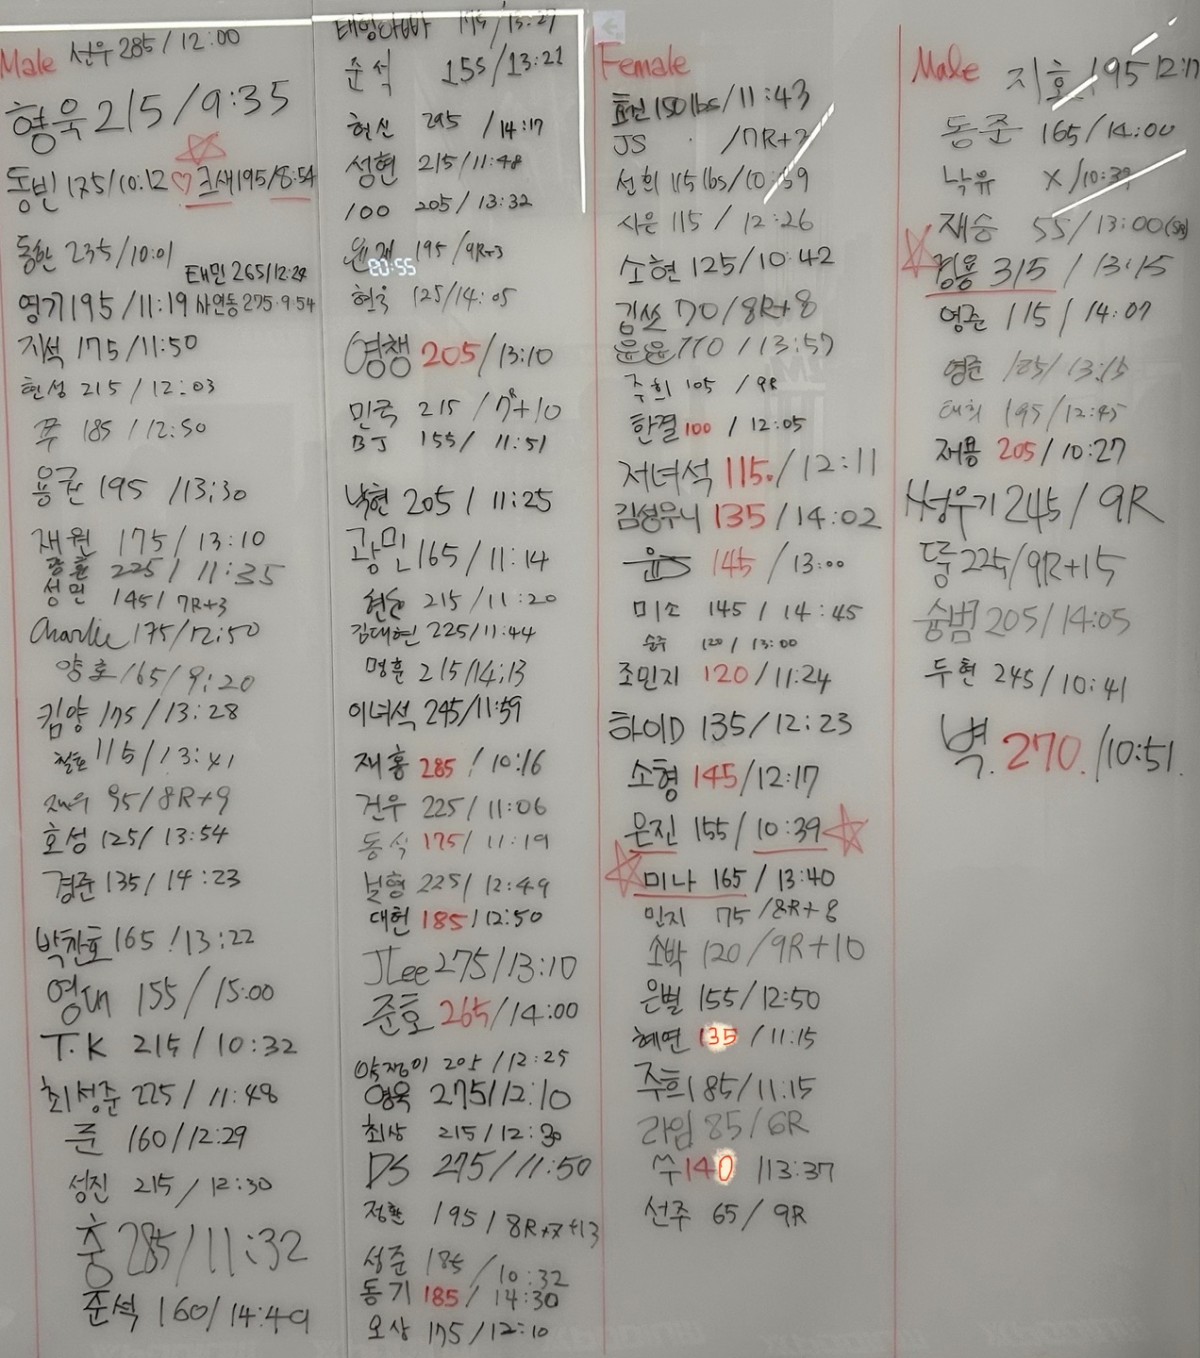 Male 선우 285/12:00
형욱 215/9:35
동빈 175/10:12 ♡ 크새 195/8:54
동한 235/10:01
태민 265/12:24
영기 195/11:19 사연동 275·9:54
지석 175/11:50
현성 215/12:03
쭈 185/12:50
용균 195/13:30
재원 175/13:10
225/11:35
성민 145/7R+3
Charlie 175/12:50
양호 165/9:20
킴양 175/13:28
115/13:41
95/8R+9
호성 125/13:54
경준 135/14:23
박찬호 165/13:22
영대 155/15:00
T.K 215/10:32
최성준 225/11:48
준 160/12:29
성진 215/12:30
충 285/11:32
준석 160/14:49
태형아빠 175/13:27
준석 155/13:21
현신 295/14:17
성현 215/11:48
100 205/13:32
195/9R+3
20:55
현우 125/14:05
영챙 205/13:10
민국 215/7R+10
BJ 155/11:51
낙현 205/11:25
광민 165/11:14
현순 215/11:20
김대현 225/11:44
명훈 215/14:13
이녀석 245/11:59
재홍 285/10:16
건우 225/11:06
동식 175/11:19
보형 225/12:49
대헌 185/12:50
JLee 275/13:10
준호 265/14:00
약쟁이 205/12:25
영욱 275/12:10
최상 215/12:30
DS 275/11:50
정환 195/8R+13
성준 185/10:32
동기 185/14:30
오상 175/12:10
Female
효진 150lbs/11:43
JS /7R+
선희 115lbs/10:59
사은 115/12:26
소현 125/10:42
김쏘 70/8R+8
윤윤 110/13:57
주희 105/9R
한결 100/12:05
저녀석 115./12:11
김성우니 135/14:02
145/13:00
미소 145/14:45
승주 120/13:00
조민지 120/11:24
하이D 135/12:23
소형 145/12:17
은진 155/10:39
미나 165/13:40
민지 75/8R+8
소박 120/9R+10
은별 155/12:50
혜연 135/11:15
주희 85/11:15
라임 85/6R
쑤 140/13:37
선주 65/9R
Male 지호 195 12:17
동준 165/14:00
낙유 X/10:39
재승 55/13:00
경용 315/13:15
영준 115/14:07
영준 125/13:15
태희 195/12:45
재용 205/10:27
서성우기 245/9R
뚱 225/9R+15
슝범 205/14:05
두현 245/10:41
벽. 270./10:51.